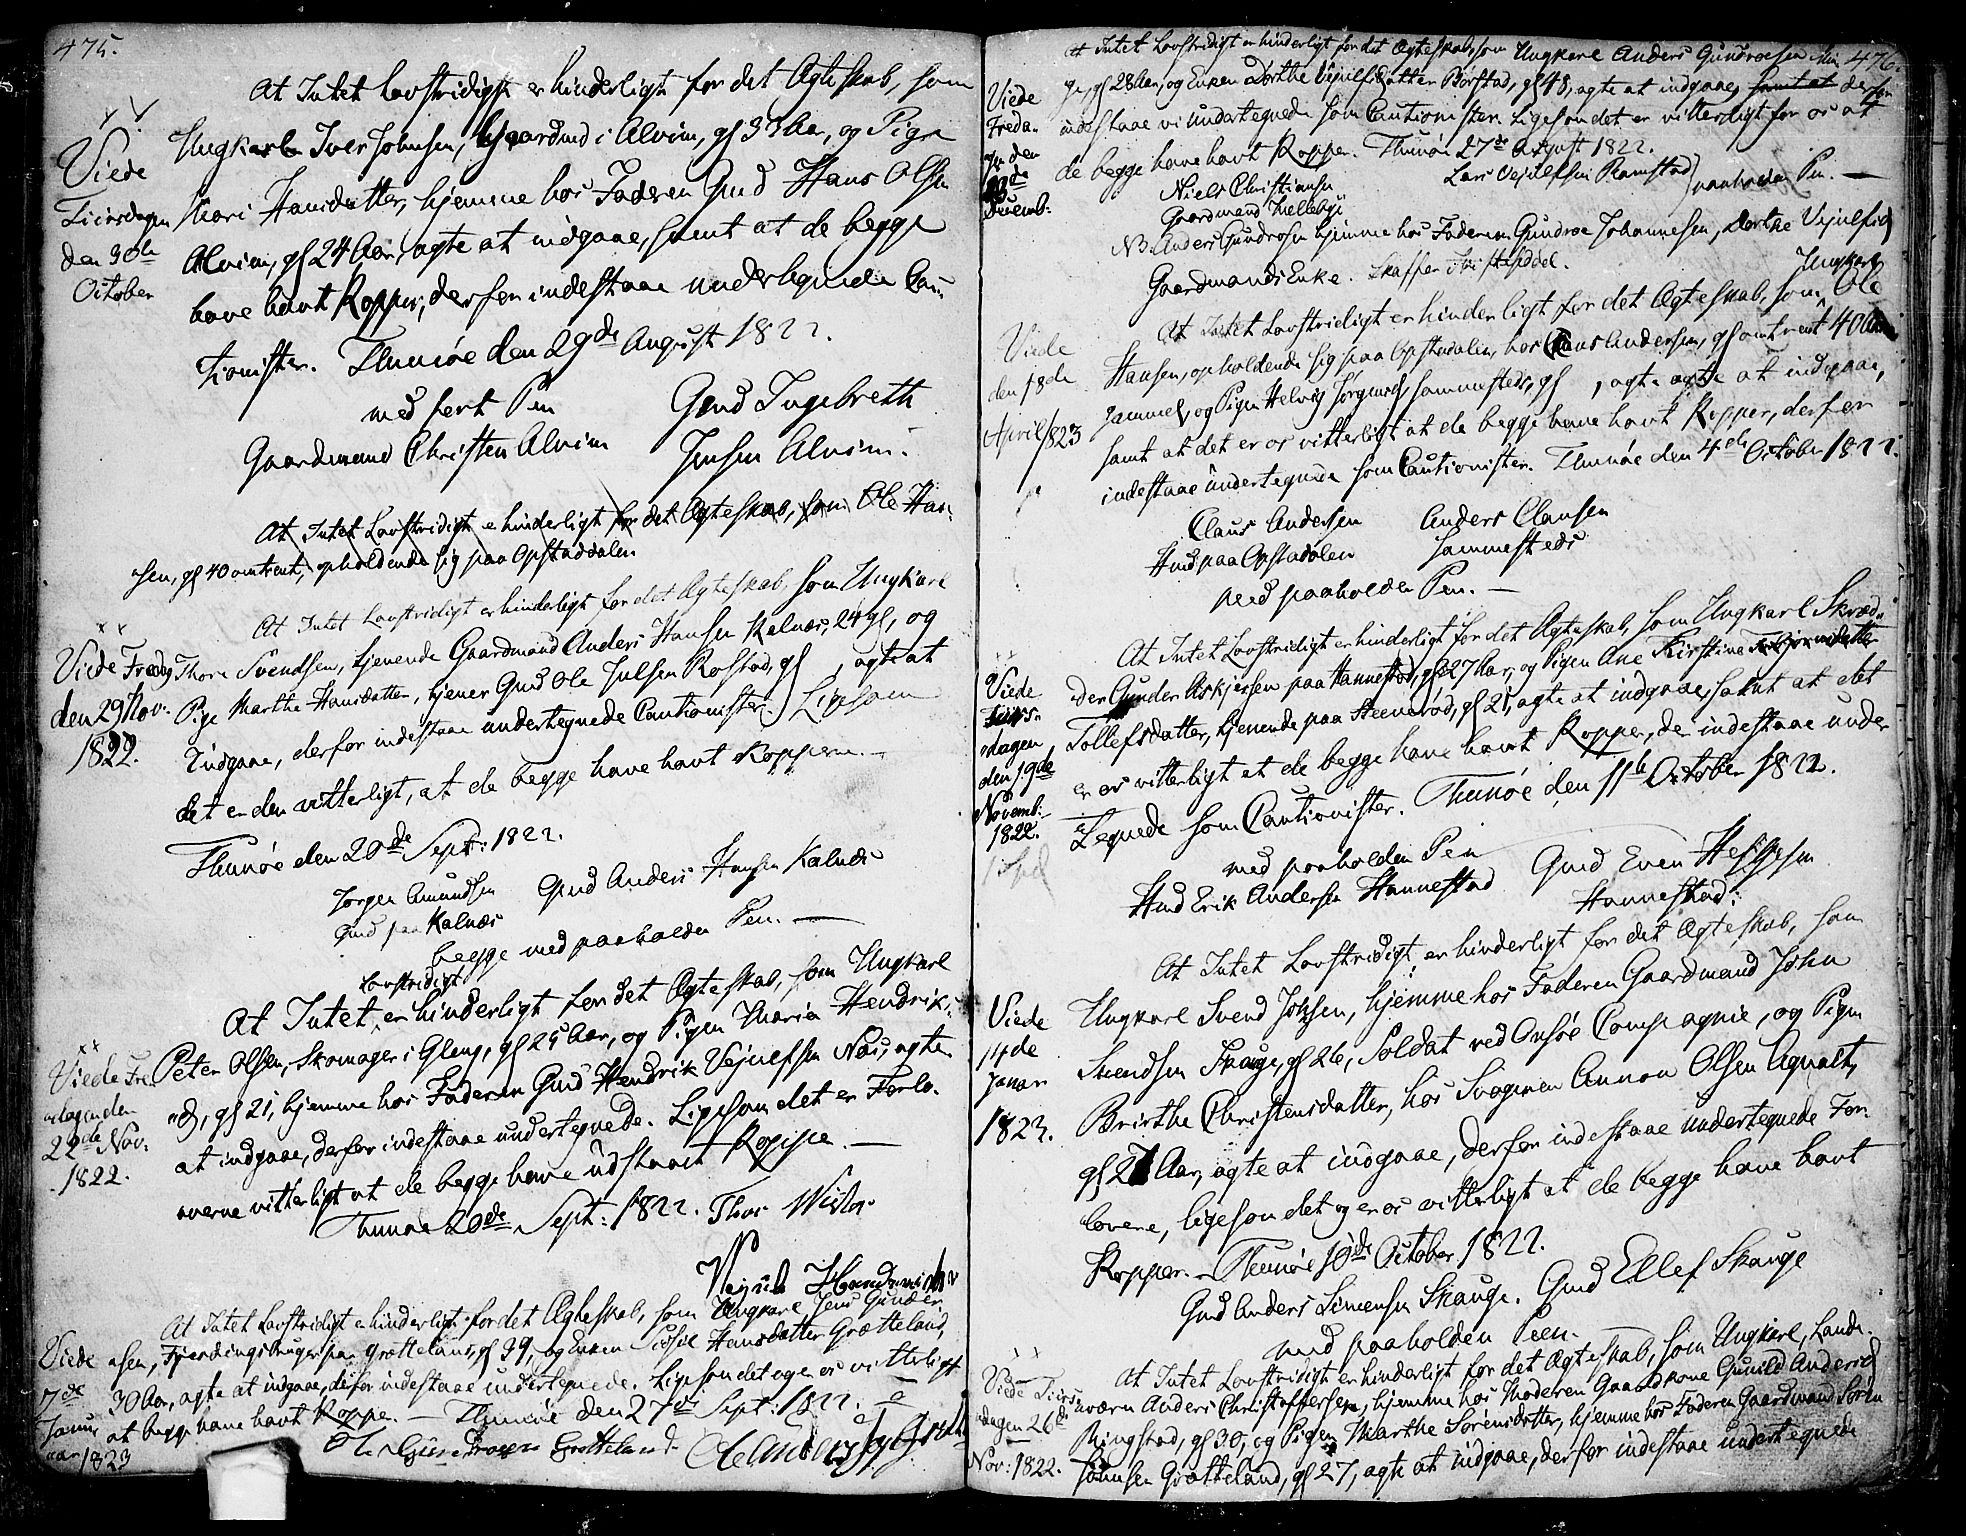 475.
At Intet Lovstridigt er hinderligt for det Ægteskab, som
Ungkarl Iver Johnsen, Gaardmd i Alvim, gl 33 Aar, og Pigen
Viede
Tiirsdagen
den 30te
October
Kari Hansdatter, hjemme hos Faderen Gmd Hans Olsen
Alvim, gl 24 Aar, agte at indgaae, samt at de begge
have havt Kopper, derfor indestaae undertegnede Cau-
tionister. Thunøe den 29de August 1822.
med ført Pen
Gaardmand Christen Alvim
Gmd Ingebreth
Jensen Alvim.
At Intet Lovstridigt er hinderligt for det Ægteskab, som Ole Han-
sen, gl 40 omtrent, opholdende sig paa Opstaddalen
At Intet Lovstridigt er hinderligt for det Ægteskab som Ungkarl
Viede Fredag
den 29 Nov.
1822.
Thore Svendsen, tjenende Gaardmand Anders Hansen Kalnæs, 24 gl, og
Pige Marthe Hansdatter, tjener Gmd Ole Julsen Rostad, gl , agte at
Indgaae, derfor indestaae undertegnede Cautionister. Ligesom
det er dem vitterligt, at de begge have havt Kopperne. -
Thunøe den 20de Sept: 1822.
Jørgen Amundsen
Gmd paa Kalnæs
Gmd Anders Hansen Kalnæs
begge med paaholden Pen. -
Lovstridigt
At Intet er hinderligt for det Ægteskab, som Ungkarl
Viede Fre-
dagen den
22de Nov.
1822.
Peter Olsen, Skomager i Gleng, gl 25 Aar, og Pigen Maria Hendriks-
d, gl 21, hjemme hos Faderen Gmd Hendrik Vejulfsen Næs, agte
at indgaae, derfor indestaae undertegnede. Ligesom det er Forlo-
verne vitterligt at de begge have udstaaet Koppe. -
Thunøe 20de Sept: 1822. Thor
At Intet Lovstridigt er hinderligt for det Ægteskab, som Ungkarl Jens Gunder-
Viede
7de
Janu-
uar 1823
sen, Fjerdingsbruger paa Grotteland, gl 39, og Enken Sidsel Hansdatter Grotteland,
30 Aar, agte at indgaae, derfor indestaae undertegnede. Ligesom det og er os vitterligt
at begge have havt Koppe. - Thunøe den 27de Sept: 1822. -
Grotteland
476.
At Intet Lovstridigt er hinderligt for det Ægteskab, som Ungkarl Anders Gundrosen
Viede
Freda-
gen den
Decemb:
gl 28 Aar, og Enken Dorthe Vejulfsdatter Borstad, gl 48, agte at indgaae, samt at derfor
indestaae vi undertegnede som Cautionister. Ligesom det er vitterligt for os at
de begge have havt Kopper. Thunøe 27de August 1822.
Niels Christiansen
Gaardmand
Lars Vejulfsen Ramstad
paaholden Pen. -
NB Anders Gundrosen hjemme hos Faderen Gundroe Johannesen, Dorthe Vejulfsd
Gaardmands Enke. Skaffer Skifteseddel.
Ungkarl
At Intet Lovstridigt er hinderligt for det Ægteskab, som Ole
Viede
den 18de
April 1823
Hansen, opholdende sig paa Opstadalen, hos Claus Andersen, gl omtrent 40 Aar
gammel, og Pigen Helvig Jørgensd sammesteds, gl , agte agte at indgaae,
samt at det er os vitterligt at de begge have havt Kopper, derfor
indestaae undertegnede som Cautionister. Thunøe den 4de October 1822.
Claus Andersen
Hmd paa Opstadalen
Anders Clausen
sammesteds
med paaholden Pen. -
At Intet Lovstridigt er hinderligt for det Ægteskab, som Ungkarl Skræd-
Viede
Tiirs-
dagen,
den 19de
Novemb:
1822.
der Gunder Askjersen paa Hannestad, gl 27 Aar, og Pigen Ane Kirstine
Tollefsdatter, tjenende paa Steenerød, gl 21, agte at indgaae, samt at det
er os vitterligt at de begge have havt Kopper, der indestaae under
Tegnede som Cautionister. Thunøe den 11te October 1822.
med paaholden Pen
Hmd Erik Andersen Hannestad
Gmd Even Helgesen
Hannestad.
At Intet Lovstridigt er hinderligt for det Ægteskab, som
Viede
14de
Januar
1823.
Ungkarl Svend Johnsen, hjemme hos Faderen Gaardmand John
Svendsen Skauge, gl 26, Soldat ved Onsøe Compagnie, og Pigen
Birthe Christensdatter, hos Svogeren Annon Olsen Agnalt,
gl 27 Aar, agte at indgaae, derfor indestaae undertegnede For-
lovere, ligesom det og er os vitterligt at de begge have havt
Kopper. - Thunøe 10de October 1822.
Gmd Anders Simensen Skauge. Gmd Ellef Skauge
med paaholden Peen. -
At Intet Lovstridigt er hinderligt for det Ægteskab, som Ungkarl, Lande-
Viede Tiirs-
dagen 26de
Nov: 1822.
værn Anders Christophersen, hjemme hos Moderen Gaardkone Gunild Andersd
Ringstad, gl 30, og Pigen Marthe Sørensdatter, hjemme hos Faderen Gaardmand Søren
Johnsen Grotteland, gl 27, agte at indgaae, derfor indestaae undertegnede